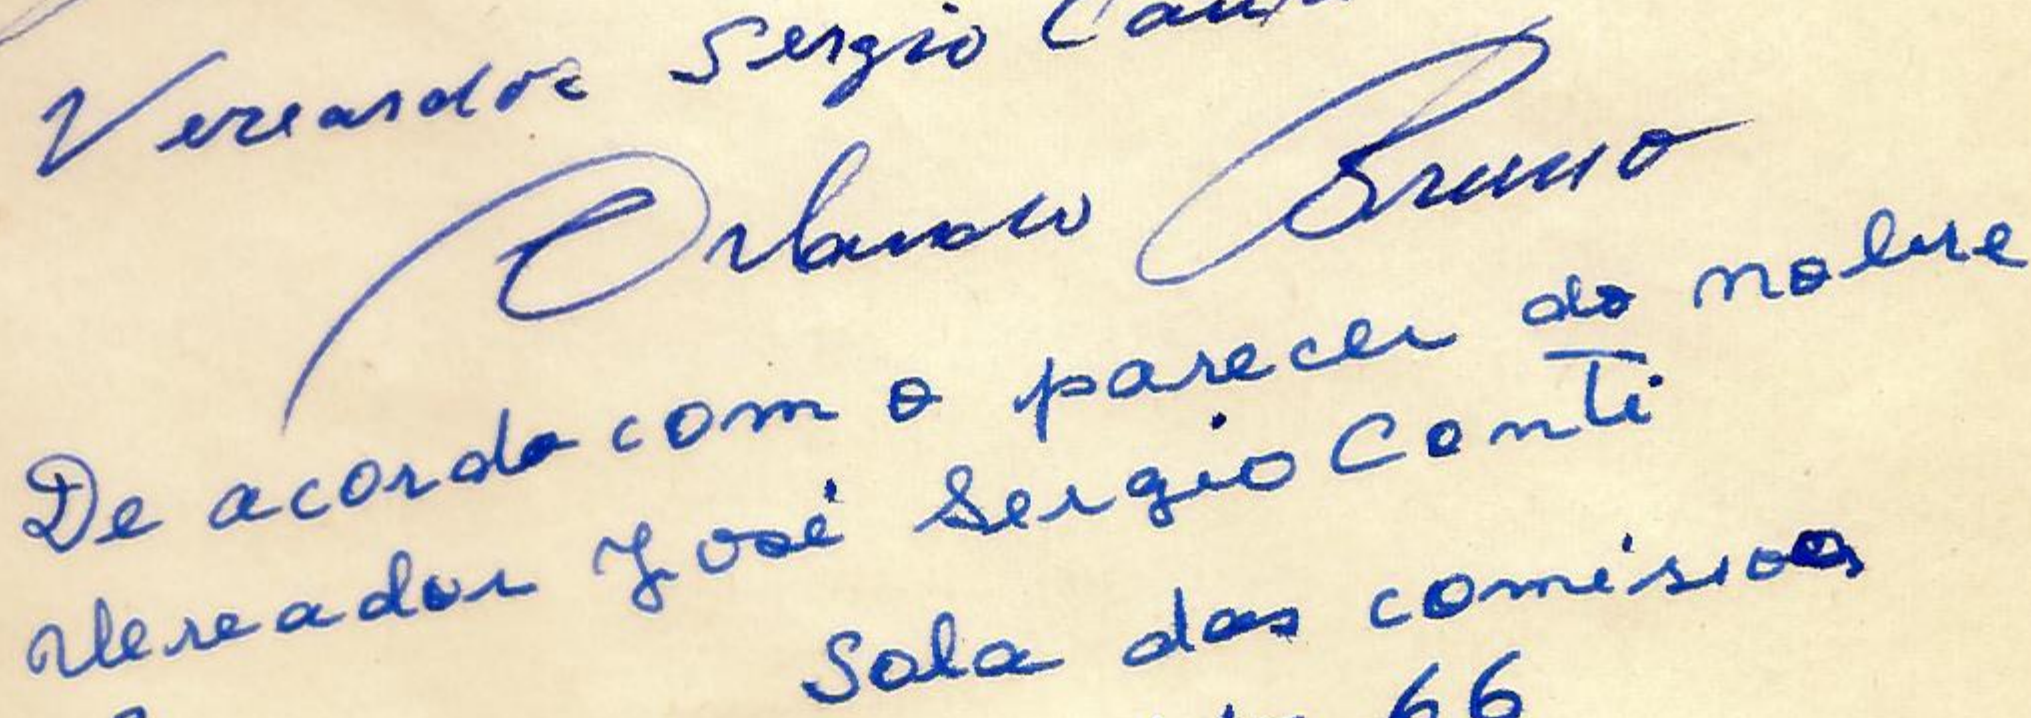 Vereandor Sergio
Orlando Bruno
De acordo com o parecer do nobre
Vereador José Sergio Conti
Sala das comisões
66